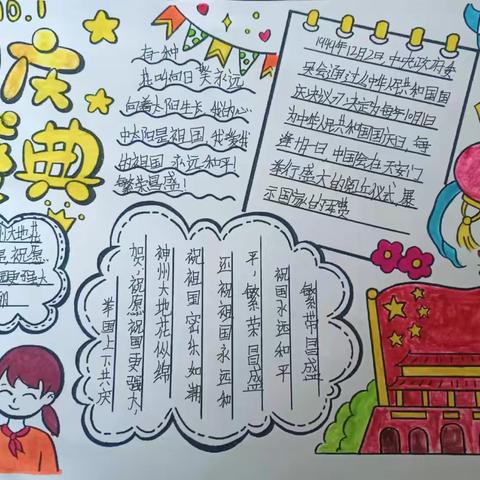 0.1
庆
典
有一种
花叫向日葵永远
向着太阳生长,我的心
中太阳是祖国,我爱我
的祖国 永远和平!
繁荣昌盛!
1949年12月2日,中央政府委
员会通过《中华人民共和国国
庆决议》决定为每年10月1日
为中华人民共和国国庆日,每
逢10月1日,中国会在天安门
举行盛大的阅兵仪式,展
示国家的军费
州大地花
祝愿
国更强大
举国上下共庆
贺,祝愿祝国更强大,
神州大地花似绵
祝祖国 乐如潮
还祝祖国永远和
平,繁荣昌盛
祝国永远和平
繁荣昌盛